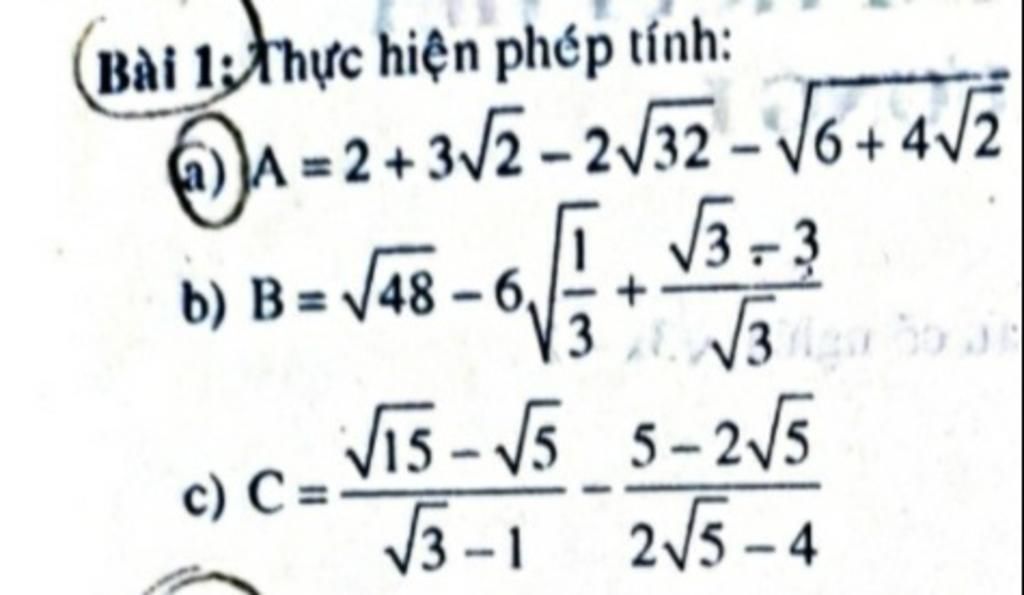 Bài 1: Thực hiện phép tính:
a) A = 2 + 3√2 − 2√32 − √(6 + 4√2)
b) B = √48 − 6√(1/3) + (√3 − 3)/√3
c) C = (√15 − √5)/(√3 − 1) − (5 − 2√5)/(2√5 − 4)